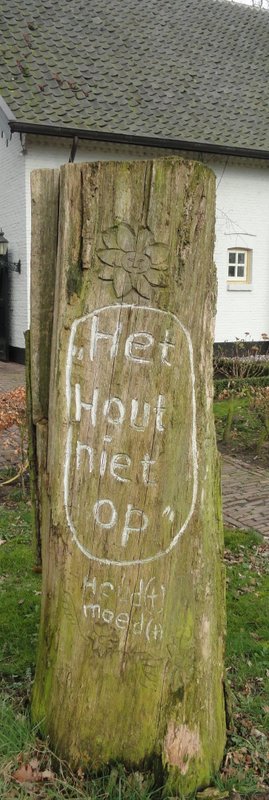 „Het
Hout
niet
op”
Held(t)
moed(t)